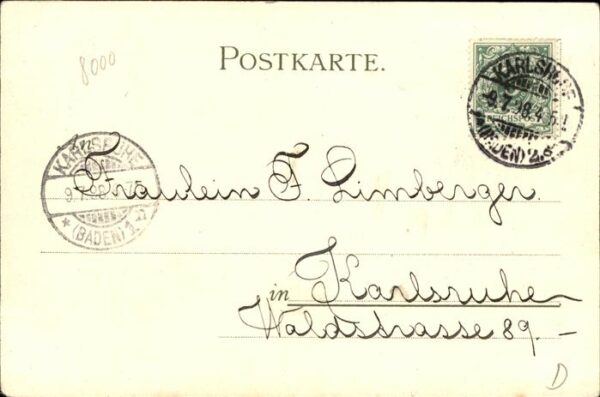 8000
POSTKARTE.
REICHSPOST
KARLSRUHE
9.7.98.4-5N
(BADEN) 2.
KARLSRUHE
9.7.98.
(BADEN) 1.
An
Fräulein F. Limberger.
in Karlsruhe
Waldstrasse 89.–
D